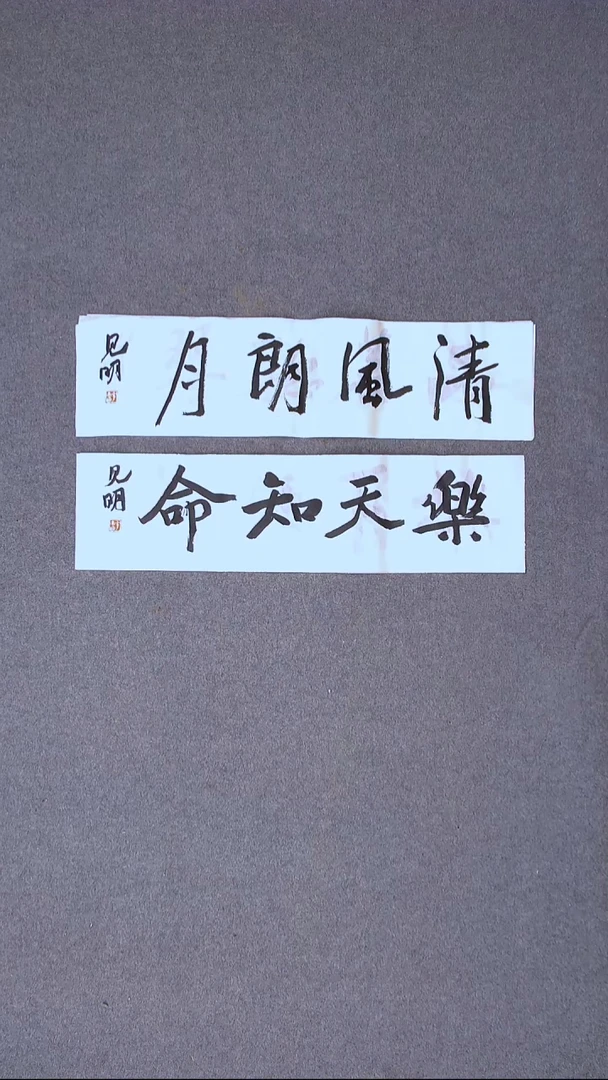 清風朗月
見明
樂天知命
見明